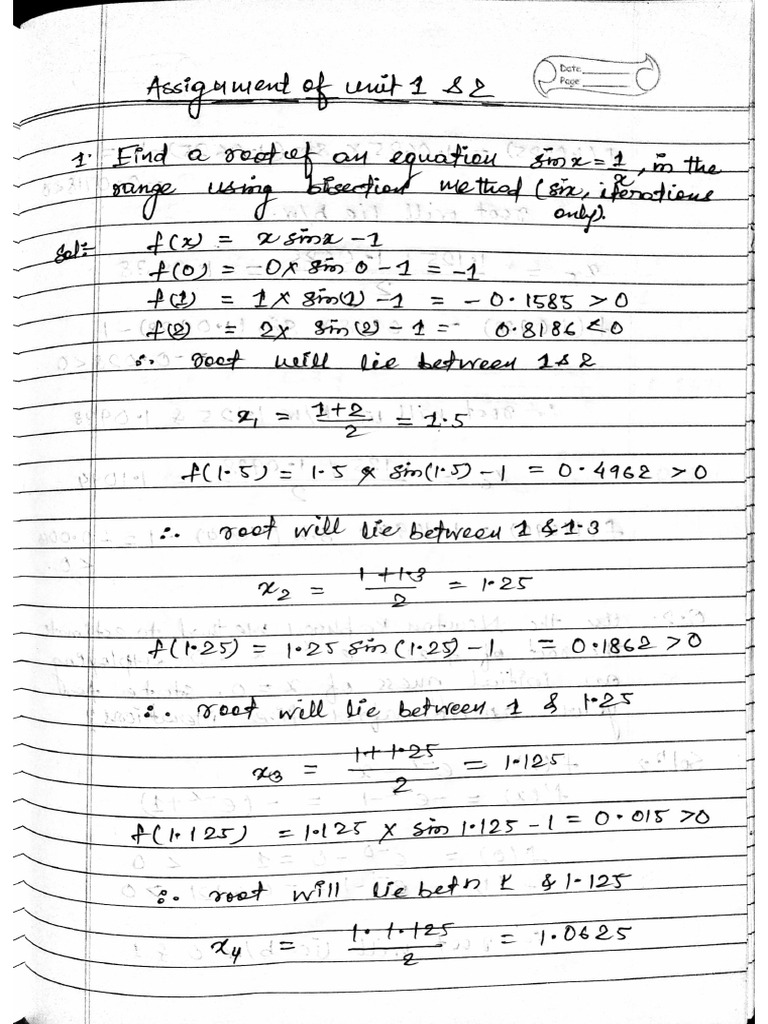 Assignment of unit 1 & 2
Date
Page
1. Find a root of an equation sinx = 1/x, in the
range using bisection method (six, iterations
only).
Sol:-
f(x) = x sinx - 1
f(0) = -0x sin 0 - 1 = -1
f(1) = 1x sin(1) - 1 = - 0.1585 > 0
f(2) = 2x sin(2) - 1 = 0.8186 < 0
∴ root will lie between 1 & 2
x₁ = (1+2)/2 = 1.5
f(1.5) = 1.5 x sin(1.5) - 1 = 0.4962 > 0
∴ root will lie between 1 & 1.3
x₂ = (1+1.3)/2 = 1.25
f(1.25) = 1.25 sin (1.25) - 1 = 0.1862 > 0
∴ root will lie between 1 & 1.25
x₃ = (1+1.25)/2 = 1.125
f(1.125) = 1.125 x sin 1.125 - 1 = 0.015 > 0
∴ root will lie betn & 1.125
x₄ = (1.1.125)/2 = 1.0625